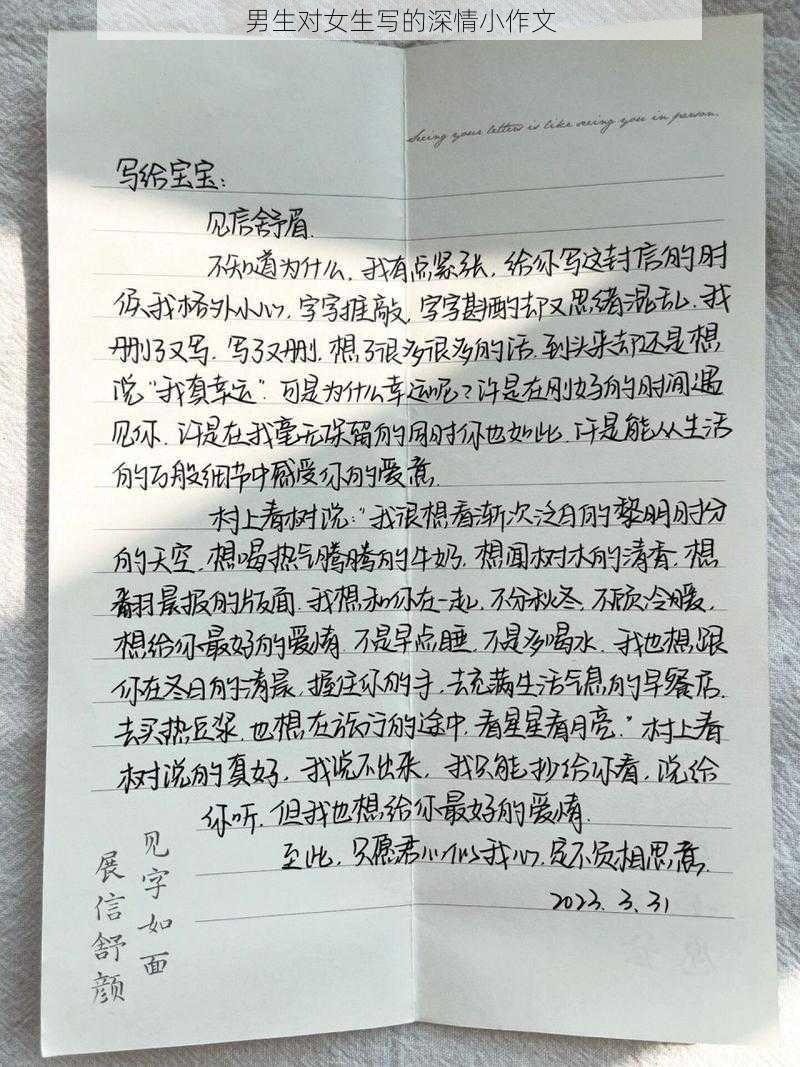 男生对女生写的深情小作文
Seeing your letters is like seeing you in person.
写给宝宝:
见信舒眉.
不知道为什么,我有点紧张,给你写这封信的时
候,我格外小心,字字推敲,字字斟酌却又思绪混乱.我
删了又写.写了又删.想了很多很多的话.到头来却还是想
说“我真幸运”.可是为什么幸运呢?许是在刚好的时间遇
见你.许是在我毫无保留的同时你也如此.许是能从生活
的百般细节中感受你的爱意.
村上春树说:“我很想看渐次泛白的黎明时分
的天空.想喝热气腾腾的牛奶.想闻树木的清香.想
翻晨报的版面.我想和你在一起.不分秋冬.不顾冷暖,
想给你最好的爱情.不是早点睡.不是多喝水.我也想跟
你在冬日的清晨.握住你的手,去充满生活气息的早餐店.
去买热豆浆.也想在旅行的途中,看星星看月亮.”村上春
树说的真好,我说不出来,我只能抄给你看,说给
你听.但我也想给你最好的爱情.
至此,只愿君心似我心.定不负相思意.
2023.3.31
见字如面
展信舒颜